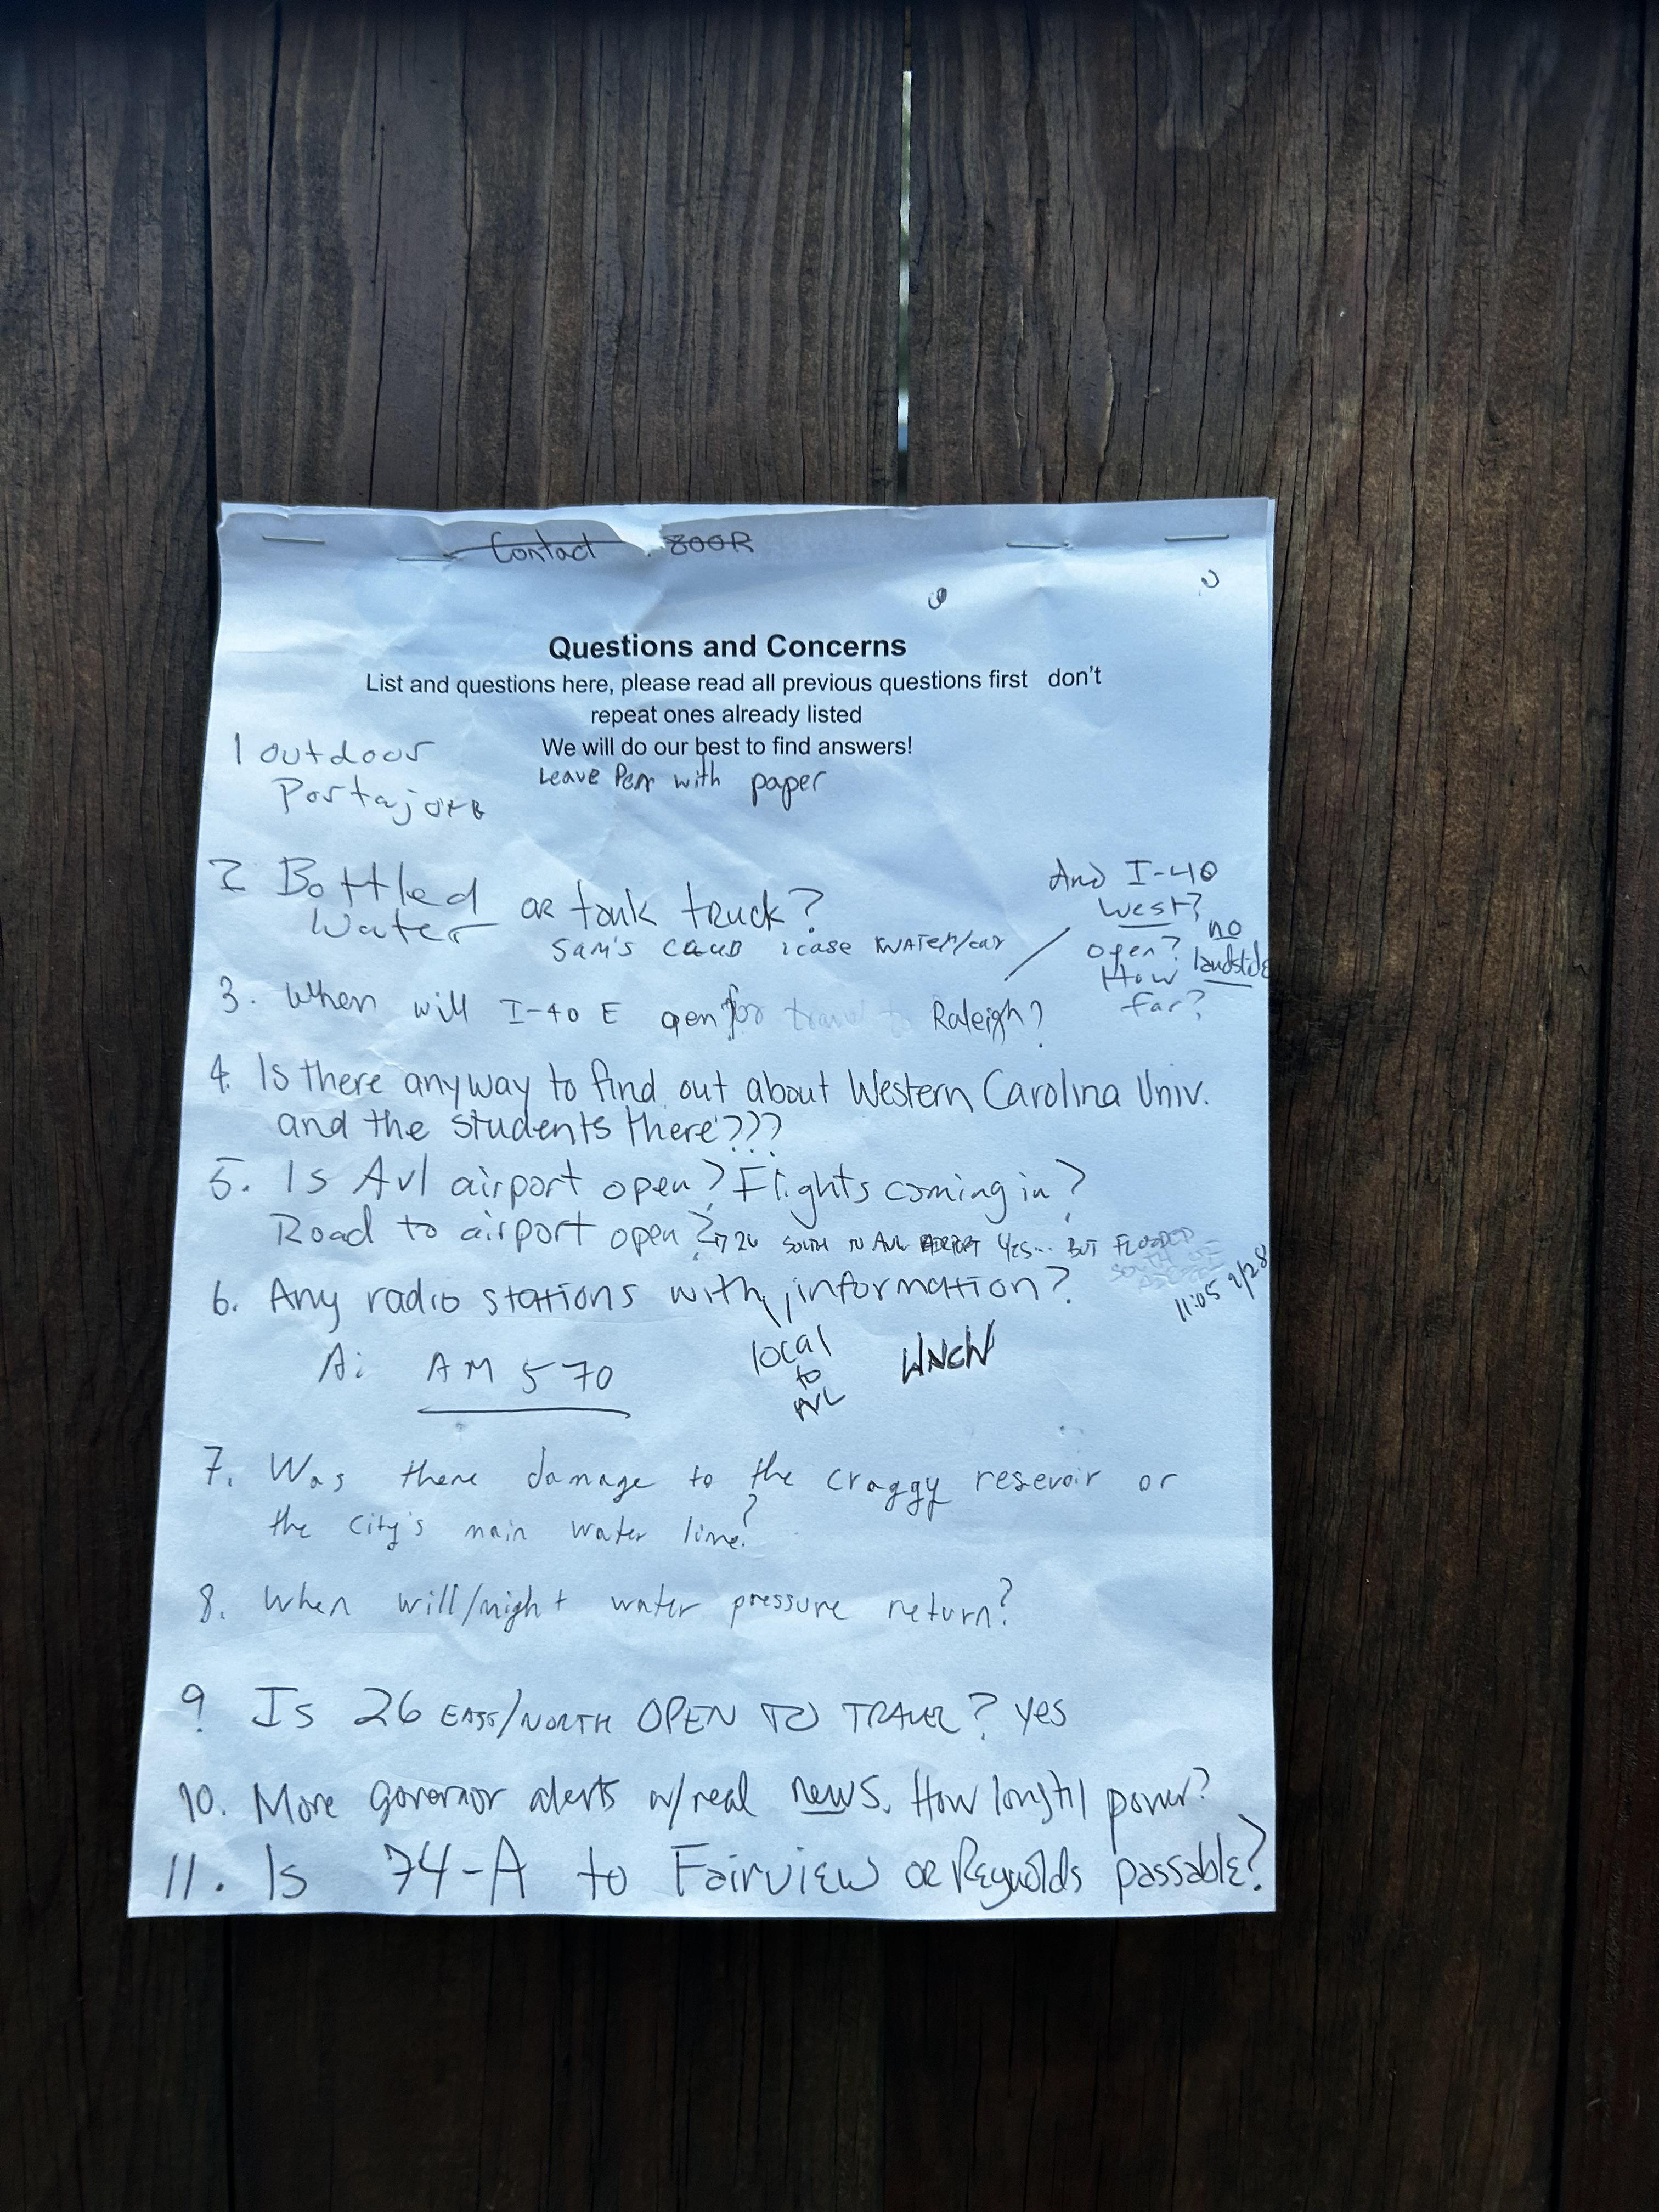 Contact 800R
Questions and Concerns
List and questions here, please read all previous questions first don't
repeat ones already listed
We will do our best to find answers!
Leave Pen with paper
1 outdoor
Portajohn
2 Bottled
Water or tank truck?
Sam's CLUB 1case WATER/car
And I-40
West?
open? no
How landslide
far?
3. When will I-40 E open for travel to Raleigh?
4. Is there anyway to find out about Western Carolina Univ.
and the students there???
5. Is Avl airport open? Flights coming in?
Road to airport open?
26 SOUTH TO AVL AIRPORT YES... BUT FLOODED
SOUTH OF
11:05 9/28
6. Any radio stations with information?
A: AM 570
local
to
AVL
WNCW
7. Was there damage to the craggy resevoir or
the city's main water line?
8. When will/might water pressure return?
9 Is 26 EAST/NORTH OPEN TO TRAVEL? yes
10. More governor alerts w/real news. How long til power?
11. Is 74-A to Fairview OR Reynolds passable?